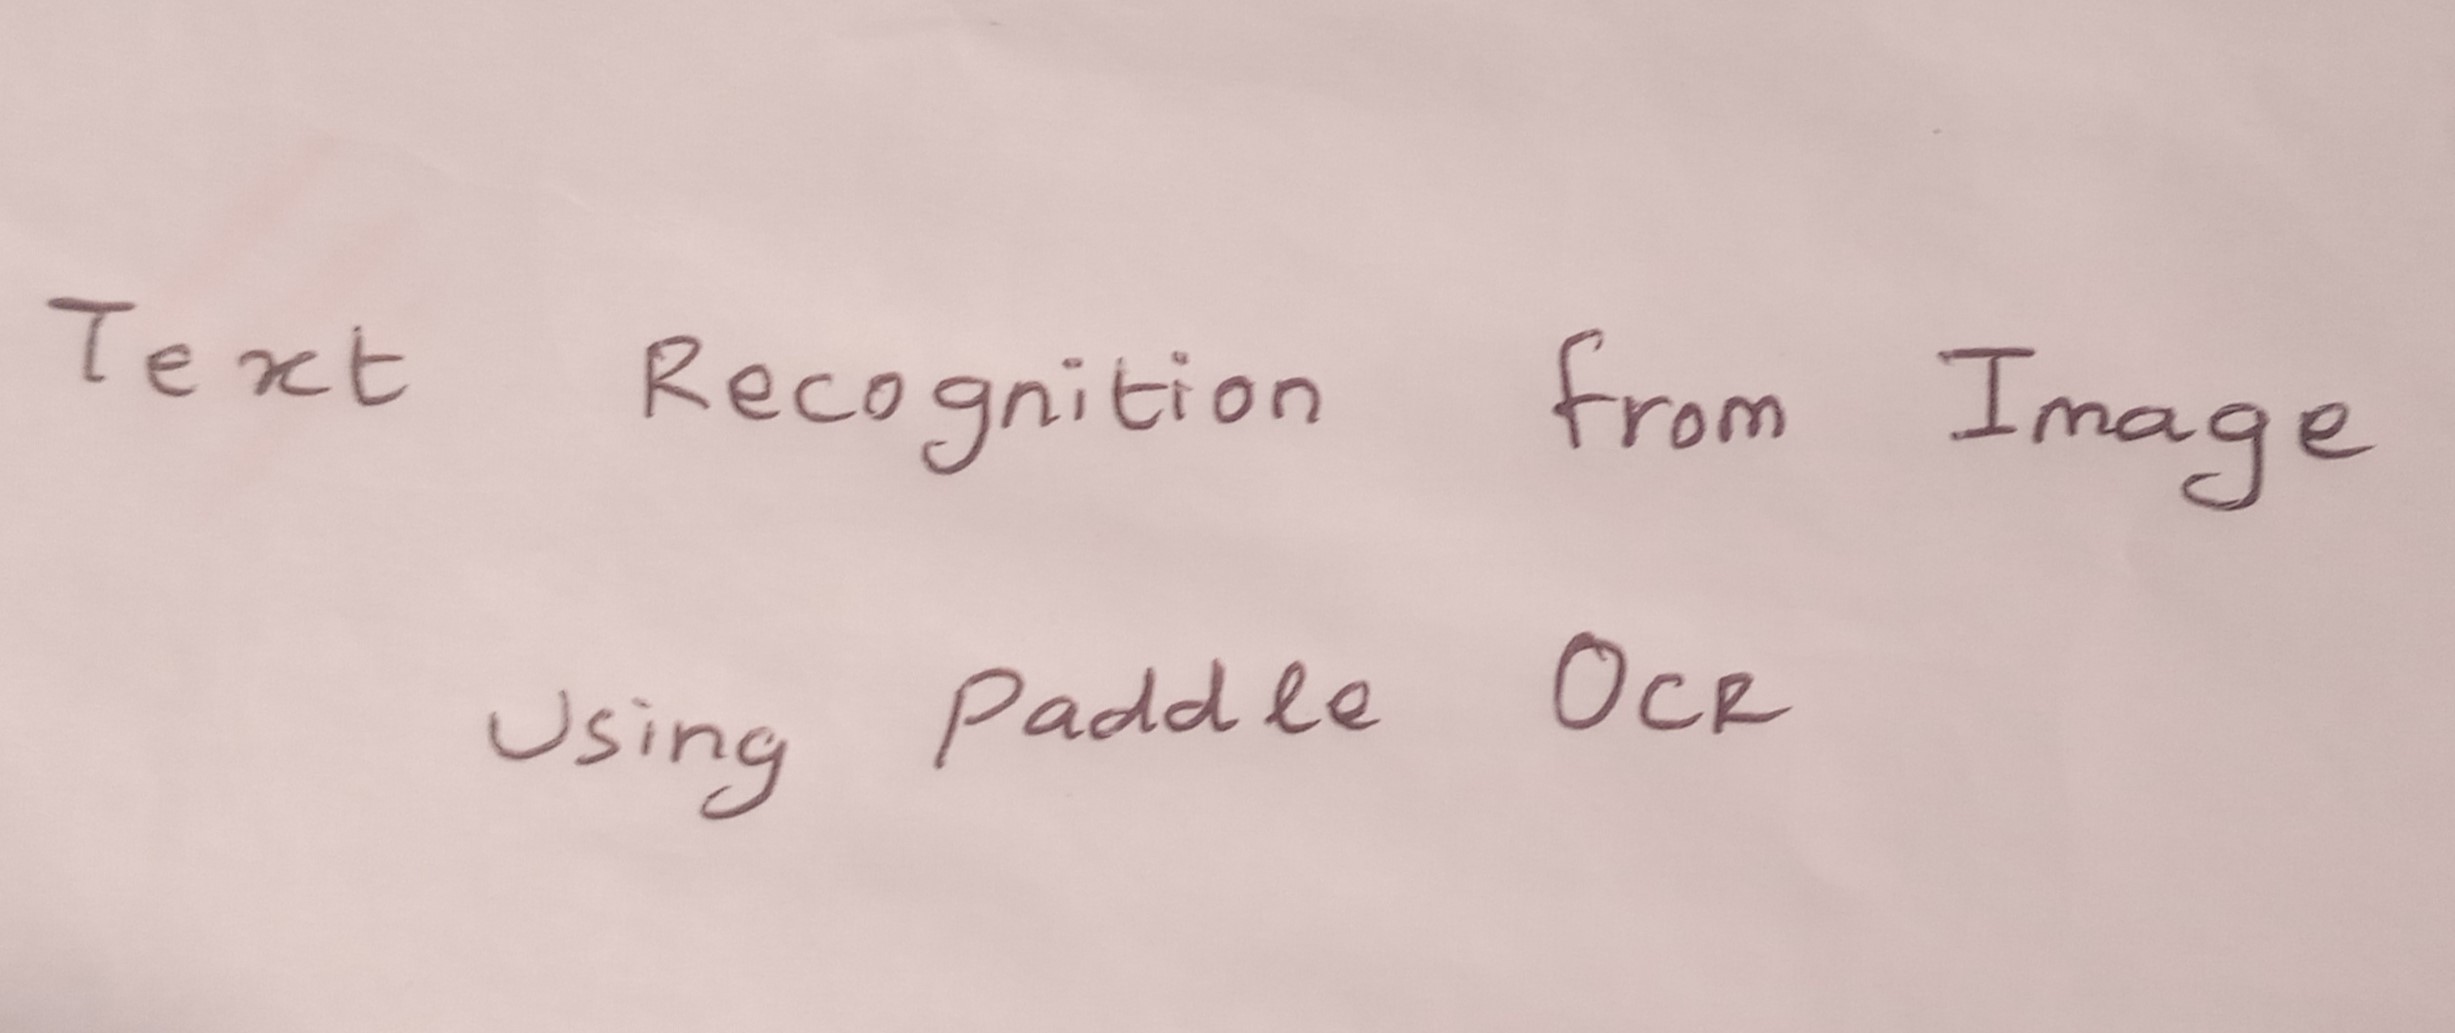 Text Recognition from Image
Using Paddle OCR